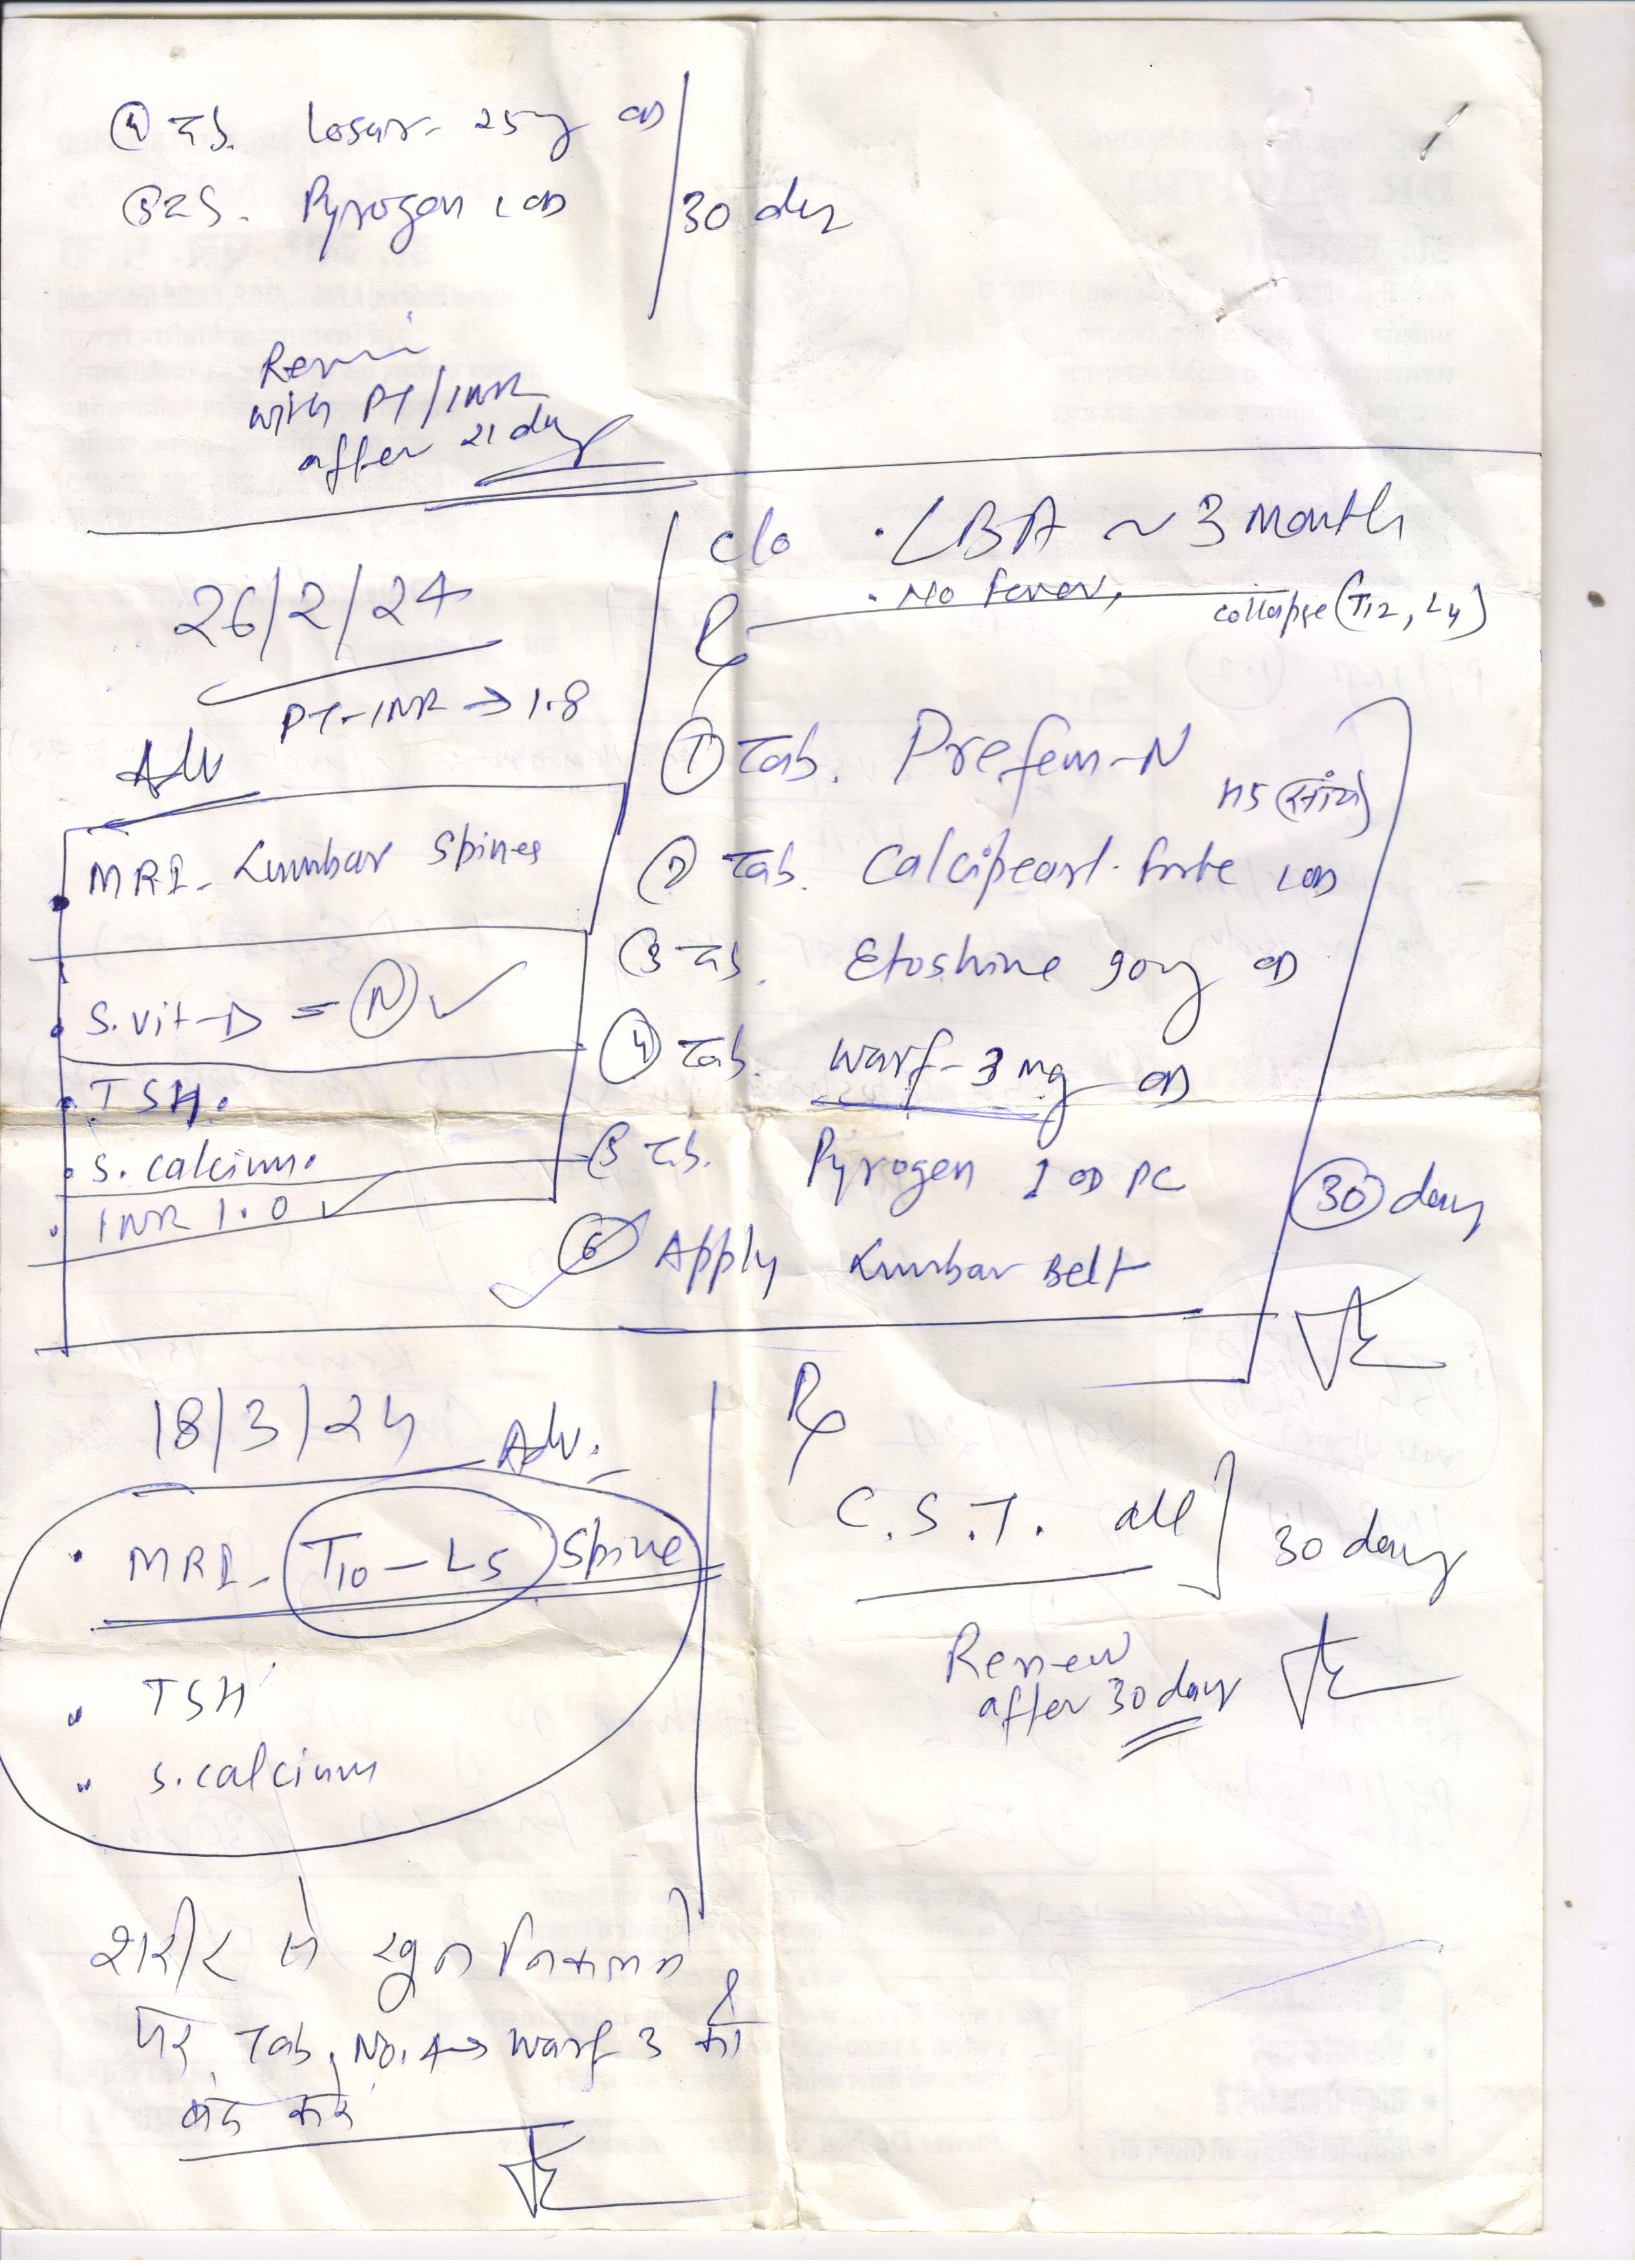 ④ Tab. Losar- 25mg OD
⑤ Tab. Pyrogen 1 OD
30 day
Review
with PT/INR
after 21 day
26/2/24
PT-INR → 1.8
Adv
MRI- Lumbar Spines
S.vit-D = Ⓝ ✓
TSH.
S. calcium.
INR 1.0 ✓
c/o . LBA ~ 3 month
. No fever,
collapse (T12, L4)
Rx
① Tab. Prefem-N
HS
② Tab. Calcipearl. forte 1 OD
③ Tab. Etoshine 90mg OD
④ Tab. Warf-3 mg OD
⑤ Tab. Pyrogen 1 OD PC
⑥ Apply Lumbar Belt
30 days
18/3/24
Adv.
MRI- T10-L5 Spine
TSH
S.calcium
Rx
C.S.T. all
30 days
Review
after 30 days
शरीर से खून निकलने
पर Tab. No. 4→ Warf 3 को
बंद करें